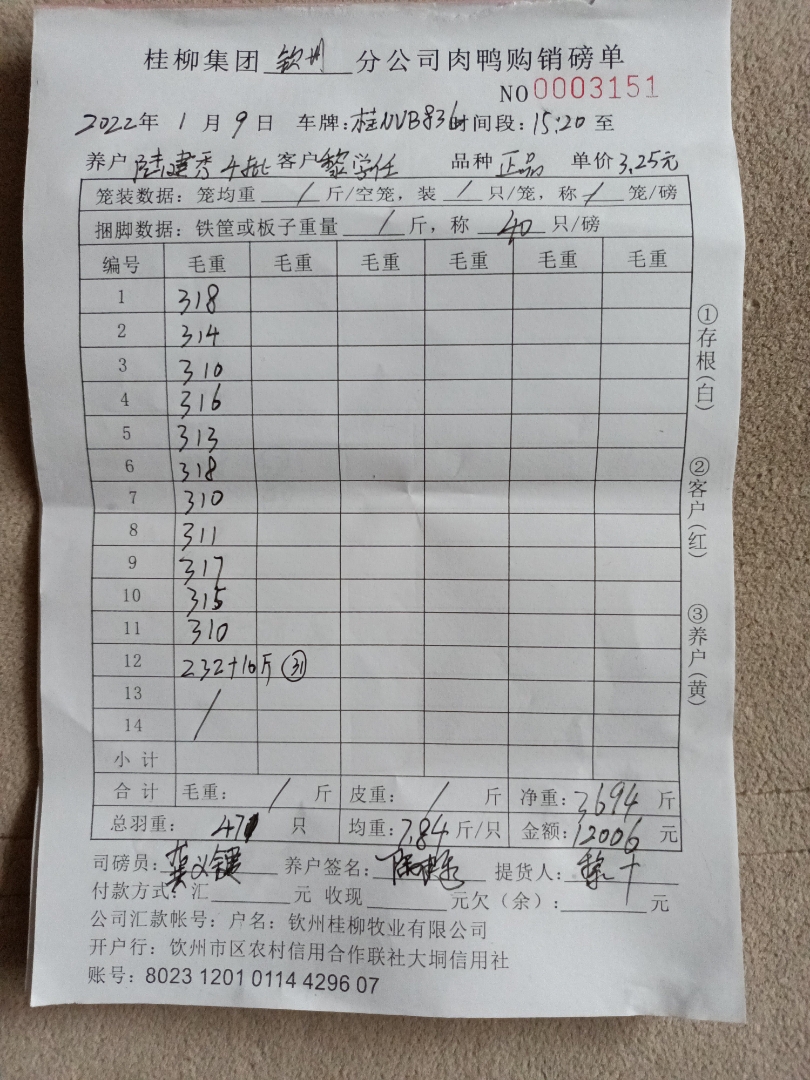 桂柳集团 钦州 分公司肉鸭购销磅单
NO 0003151
2022年 1 月 9 日 车牌:桂NVB836时间段:15:20 至
养户 陆建秀 4批 客户 黎学任 品种 正品 单价 3.25元
笼装数据:笼均重 / 斤/空笼,装 / 只/笼,称 / 笼/磅
捆脚数据:铁筐或板子重量 / 斤,称 40 只/磅
编号 毛重 毛重 毛重 毛重 毛重 毛重
1 318
2 314
3 310
4 316
5 313
6 318
7 310
8 311
9 317
10 315
11 310
12 232+10斤 ㉛
13
14 /
小 计
合 计 毛重: / 斤 皮重: / 斤 净重:3694 斤
总羽重: 471 只 均重:7.84 斤/只 金额:12006 元
司磅员: 养户签名: 提货人:
付款方式:汇 元 收现 元欠(余): 元
公司汇款帐号:户名:钦州桂柳牧业有限公司
开户行:钦州市区农村信用合作联社大垌信用社
账号:8023 1201 0114 4296 07
①存根(白)
②客户(红)
③养户(黄)